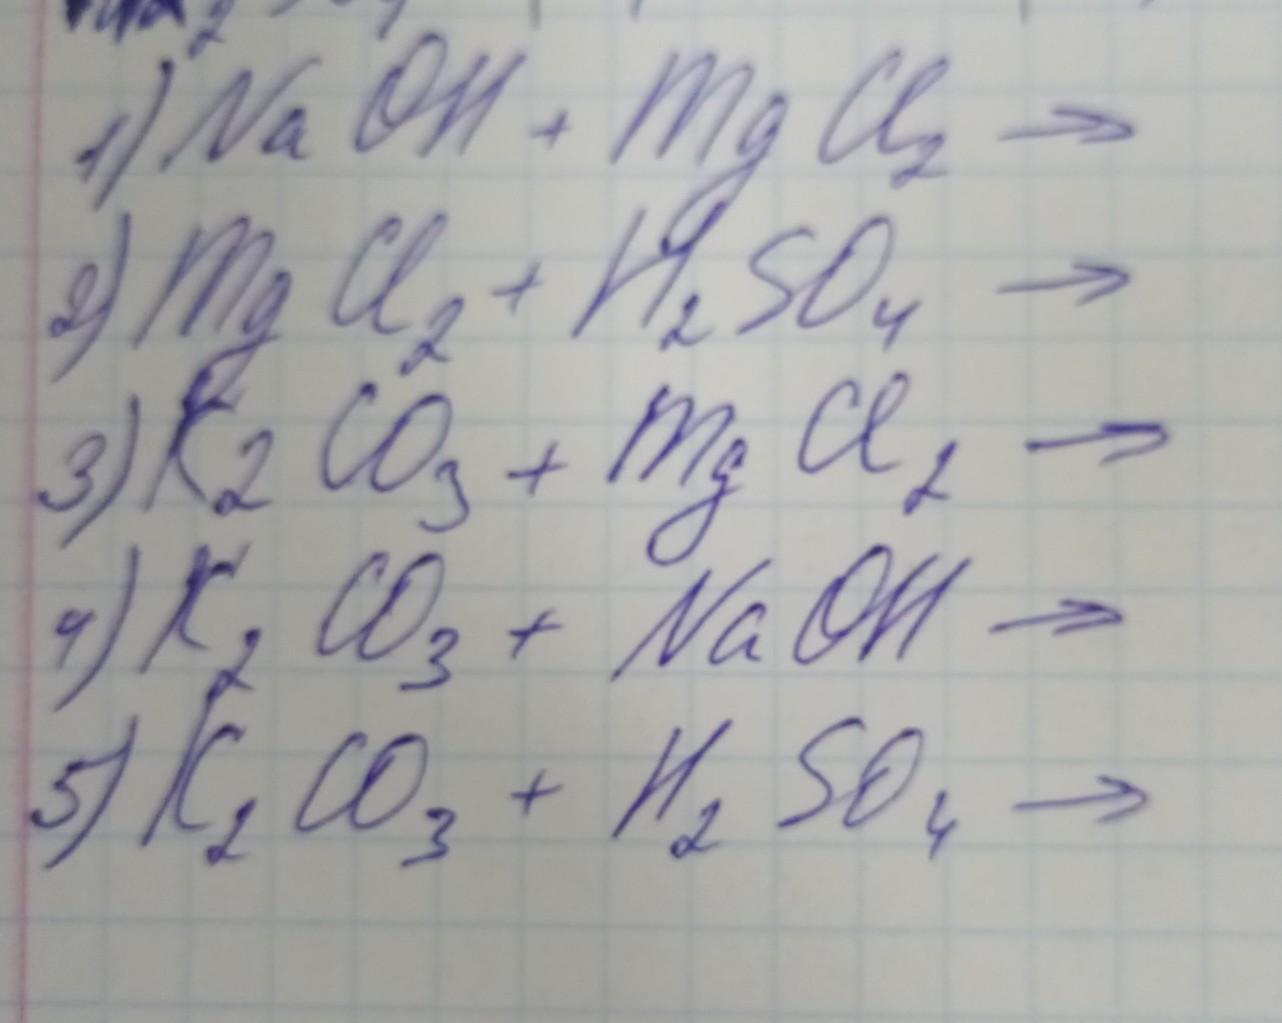 1) NaOH + MgCl2 →
2) MgCl2 + H2SO4 →
3) K2CO3 + MgCl2 →
4) K2CO3 + NaOH →
5) K2CO3 + H2SO4 →